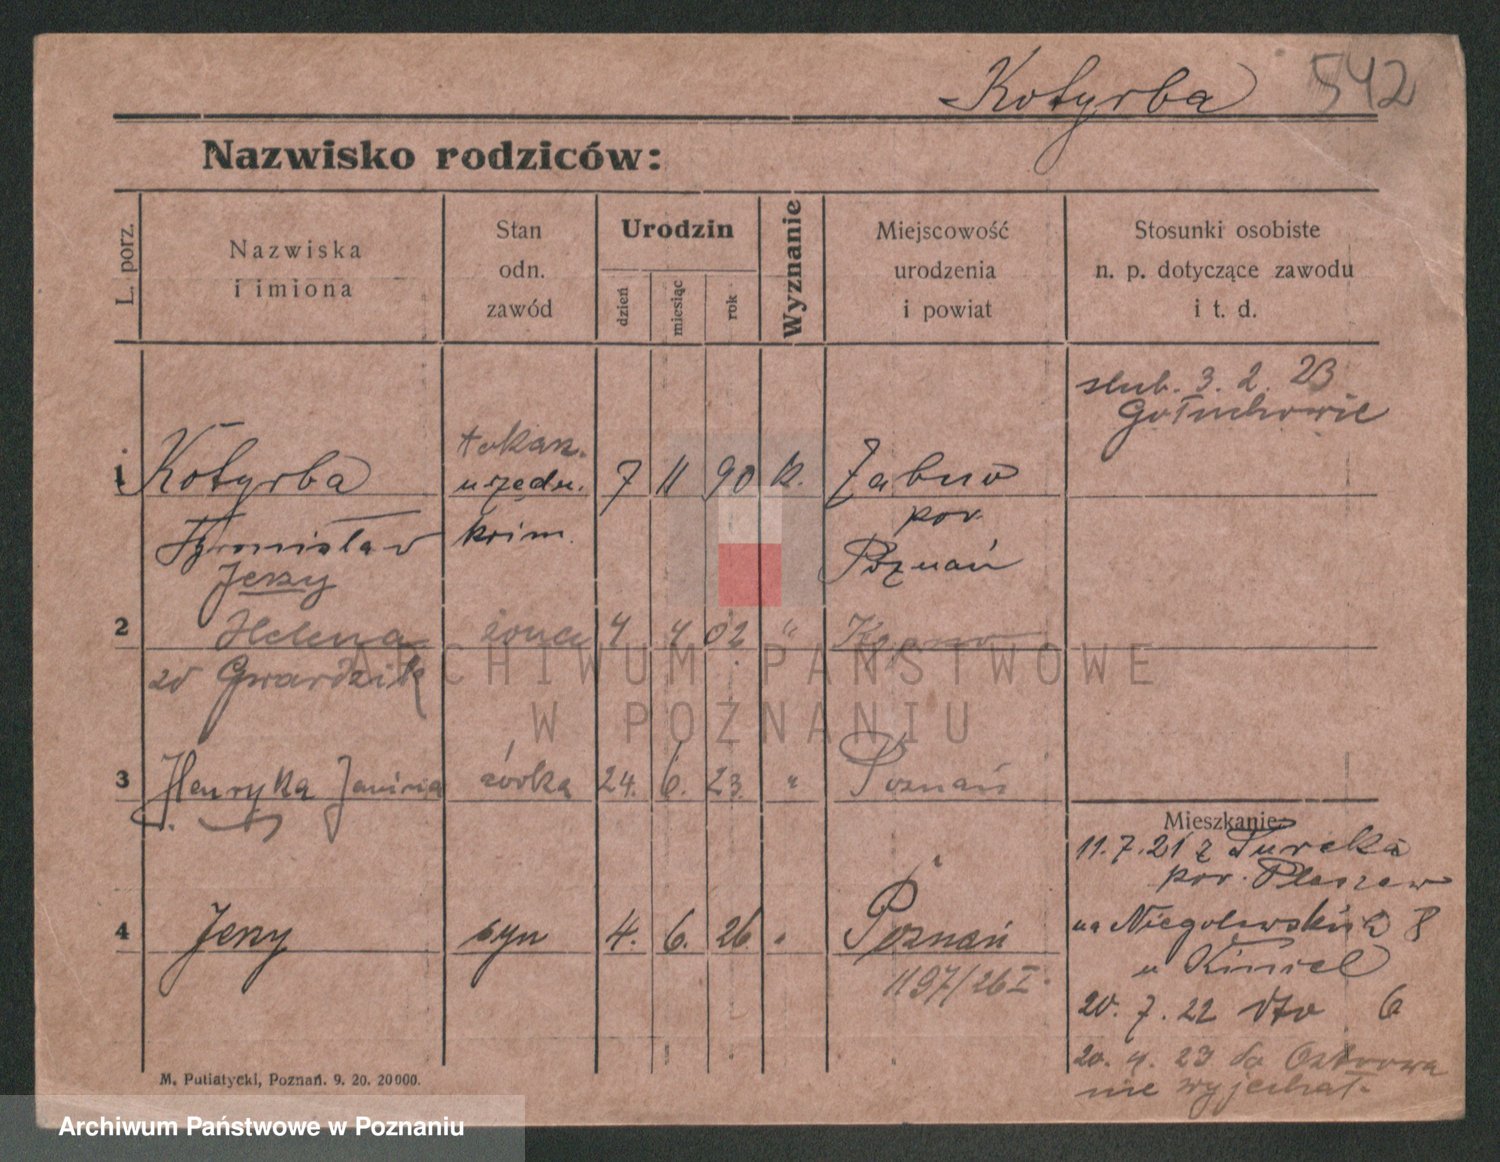 Kotyrba 542
Nazwisko rodziców:
L. porz.
Nazwiska
i imiona
Stan
odn.
zawód
Urodzin
dzień
miesiąc
rok
Wyznanie
Miejscowość
urodzenia
i powiat
Stosunki osobiste
n. p. dotyczące zawodu
i t. d.
ślub. 3. 2. 23
Gołuchowie
tokarz.
1 Kotyrba urzędn. 7 11 90 k. Żabno
Bronisław krim. pow.
Jerzy Poznań
2 Helena żona 4 4 02 "
zd Gwardzik
3 Henryka Janina córka 24. 6. 23. " Poznań
Mieszkanie:
11.7.21 z Turcka
pow. Pleszew
4 Jerzy syn 4. 6. 26 " Poznań
1197/26 I.
na Niegolewskich 8
u Kimel
20. 7. 22 dto 6
20. 4. 23 do Ostrowa
nie wyjechał.
M. Putiatycki, Poznań. 9. 20. 20000.
ARCHIWUM PAŃSTWOWE
W POZNANIU
Archiwum Państwowe w Poznaniu